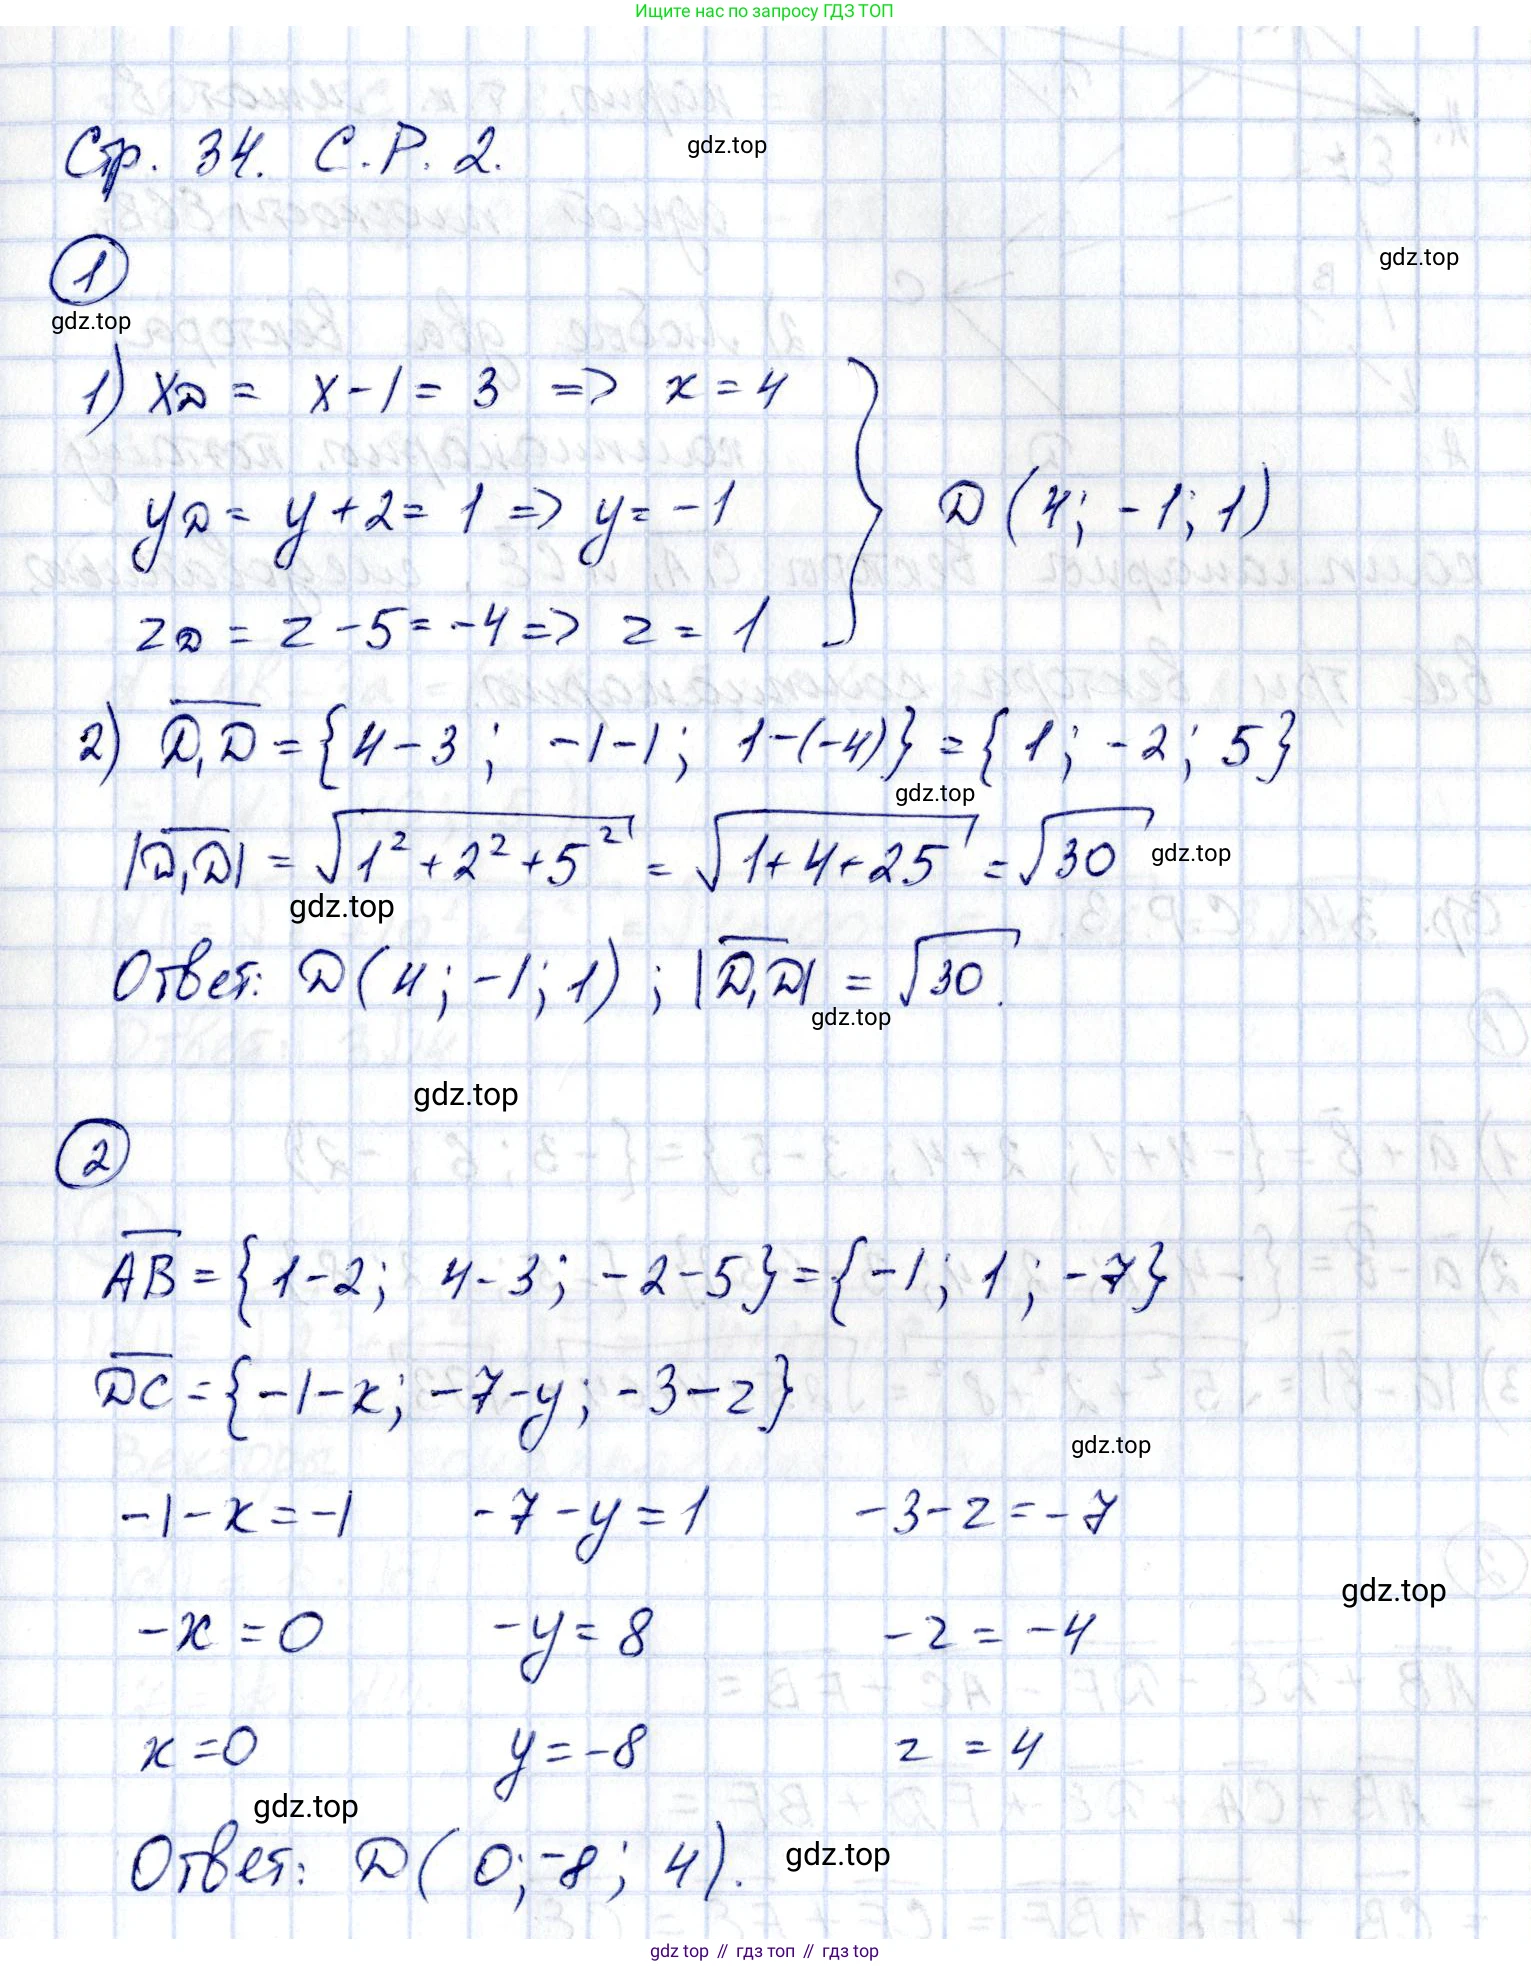 Ищите нас по запросу ГДЗ ТОП
Стр. 34. С.Р. 2.
gdz.top
1
gdz.top
gdz.top
1) x_D = x - 1 = 3 => x = 4
y_D = y + 2 = 1 => y = -1
z_D = z - 5 = -4 => z = 1
D (4; -1; 1)
2) D₁D = {4 - 3; -1 - 1; 1 - (-4)} = {1; -2; 5}
gdz.top
|D₁D| = √1² + 2² + 5² = √1 + 4 + 25 = √30
gdz.top
gdz.top
Ответ: D (4; -1; 1); |D₁D| = √30.
gdz.top
gdz.top
2
AB = {1 - 2; 4 - 3; -2 - 5} = {-1; 1; -7}
DC = {-1 - x; -7 - y; -3 - z}
gdz.top
-1 - x = -1 -7 - y = 1 -3 - z = -7
gdz.top
-x = 0 -y = 8 -z = -4
x = 0 y = -8 z = 4
gdz.top
Ответ: D (0; -8; 4).
gdz.top
gdz top // гдз топ // гдз top